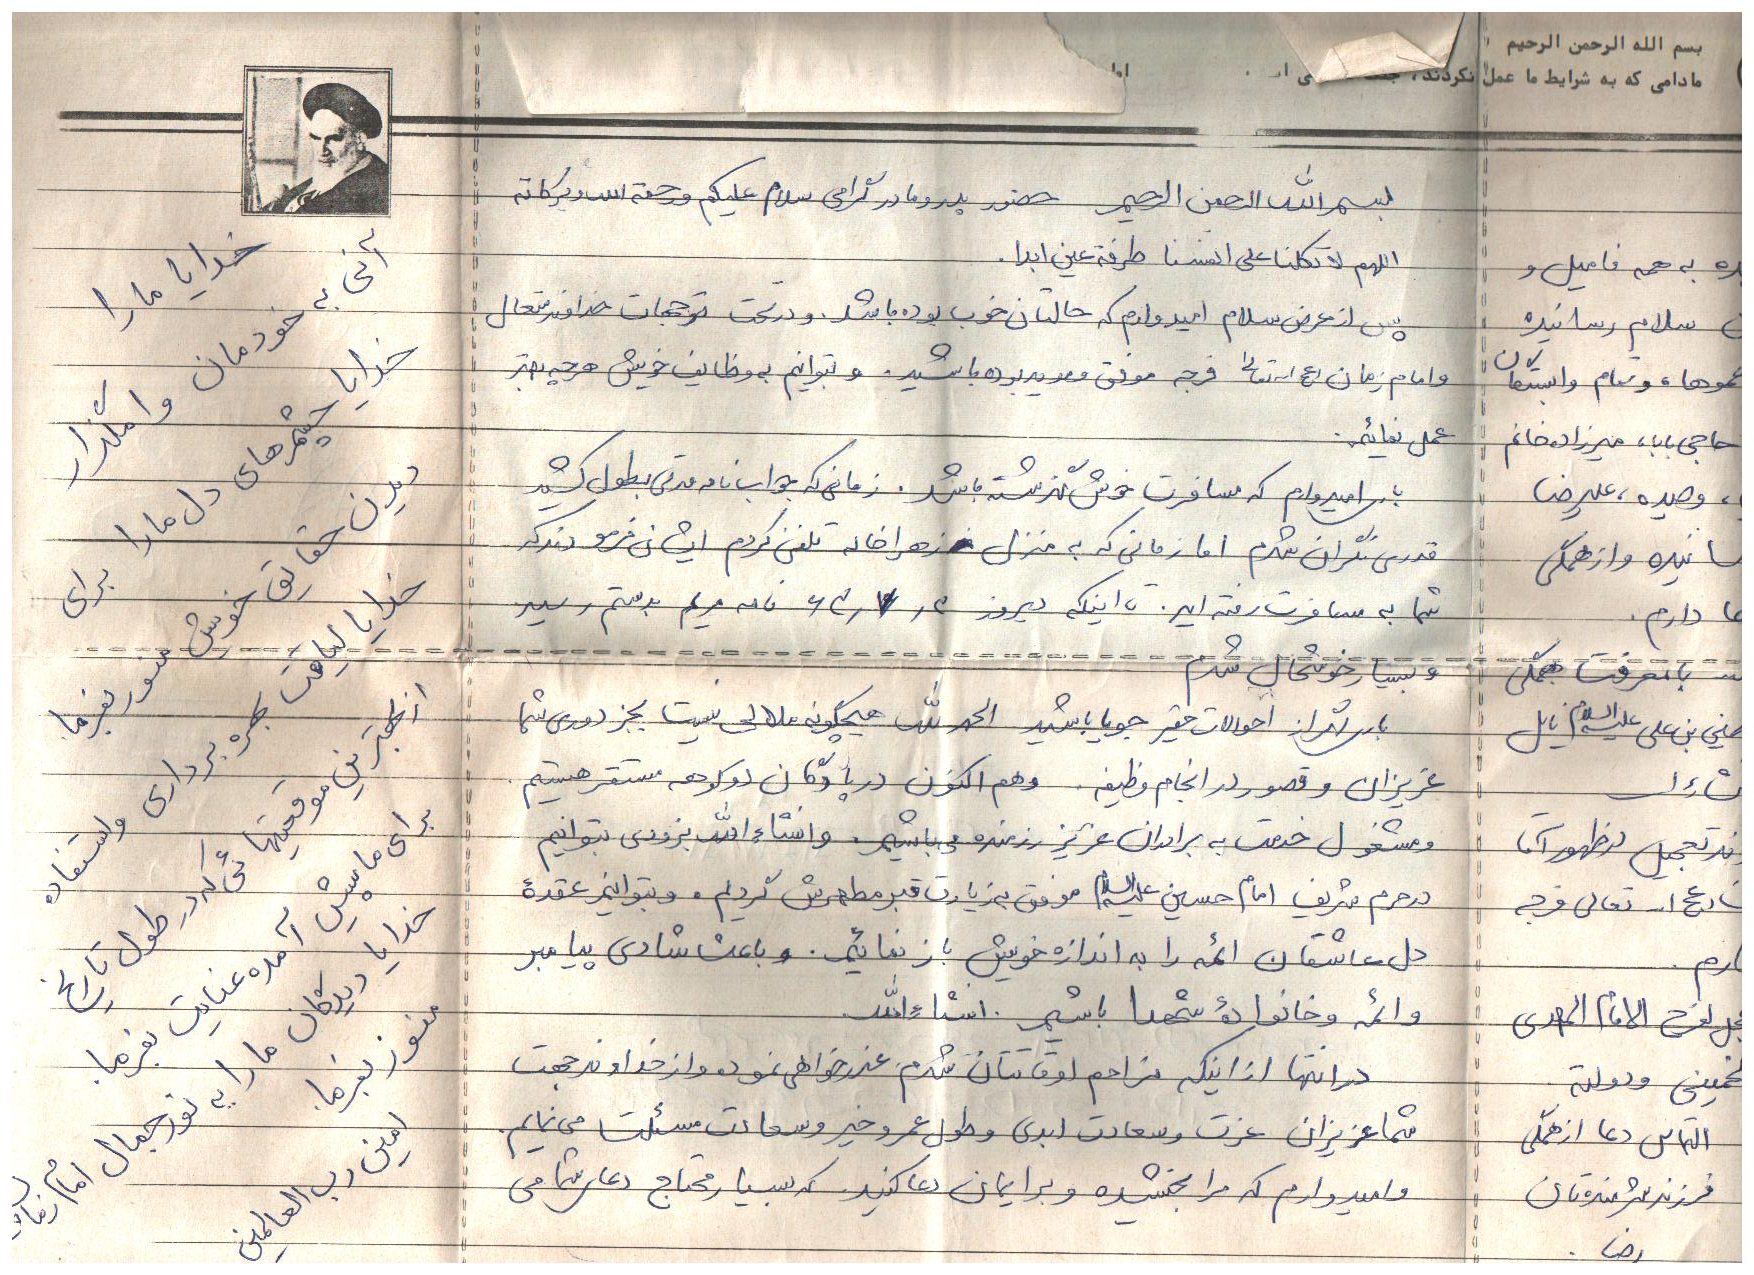 بسم الله الرحمن الرحیم
مادامی که به شرایط ما عمل نکردند،
بسم الله الرحمن الرحیم حضور پدر و مادر گرامی سلام علیکم و رحمة الله و برکاته
اللهم لا تکلنا علی انفسنا طرفة عین ابدا.
پس از عرض سلام امیدوارم که حالتان خوب بوده باشد. و در تحت توجهات خداوند متعال
و امام زمان عج الله تعالی فرجه موفق و موید بوده باشید. و بتوانیم به وظایف خویش هر چه بهتر
عمل نمائیم.
باری امیدوارم که مسافرت خوش گذشته باشد. زمانی که جواب نامه مدتی بطول کشید
قدری نگران شدم اما زمانی که به منزل زهرا خانه تلفن کردم ایشان فرمودند که
شما به مسافرت رفته اید. تا اینکه دیروز نامه مریم بدستم رسید
و بسیار خوشحال شدم
باری اگر از احوالات حقیر جویا باشید الحمدلله هیچگونه ملالی نیست بجز دوری شما
عزیزان و قصور در انجام وظیفه. و هم اکنون در پادگان دوکوهه مستقر هستیم.
و مشغول خدمت به برادران عزیز رزمنده می باشیم. و انشاءالله بزودی بتوانیم
در حرم شریف امام حسین علیه السلام موفق به زیارت قبر مطهرش گردیم. و بتوانیم عقدهٔ
دل عاشقان ائمه را به اندازه خویش باز نمائیم. و باعث شادی پیامبر
و ائمه و خانوادهٔ شهدا باشیم. انشاءالله.
در انتها از اینکه مزاحم اوقاتتان شدم عذرخواهی نموده و از خداوند جهت
شما عزیزان عزت و سعادت ابدی و طول عمر و خیر و سعادت مسئلت می نمایم.
و امیدوارم که مرا بخشیده و برایمان دعا کنید. که بسیار محتاج دعای شما می
به همه فامیل و
سلام رسانیده
عموها، و تمام وابستگان
حاجی بابا، میرزاده خانم
وحیده، علیرضا
و از همگی
دارم.
با معرفت همگی
بن علی علیه السلام نایل
تعجیل در ظهور آقا
عج الله تعالی فرجه
لفرج الامام المهدی
خمینی و دولته
التماس دعا از همگی
فرزند شرمنده تان
رضا.
خدایا ما را
آنی به خودمان وامگذار
خدایا چشمهای دل ما را برای
دیدن حقایق خویش منور بفرما
خدایا لیاقت بهره برداری و استفاده
از بهترین موقعیتهائی که در طول تاریخ
برای ما پیش آمده عنایت بفرما
خدایا دیدگان ما را به نور جمال امام زمان
منور بفرما
امین رب العالمین